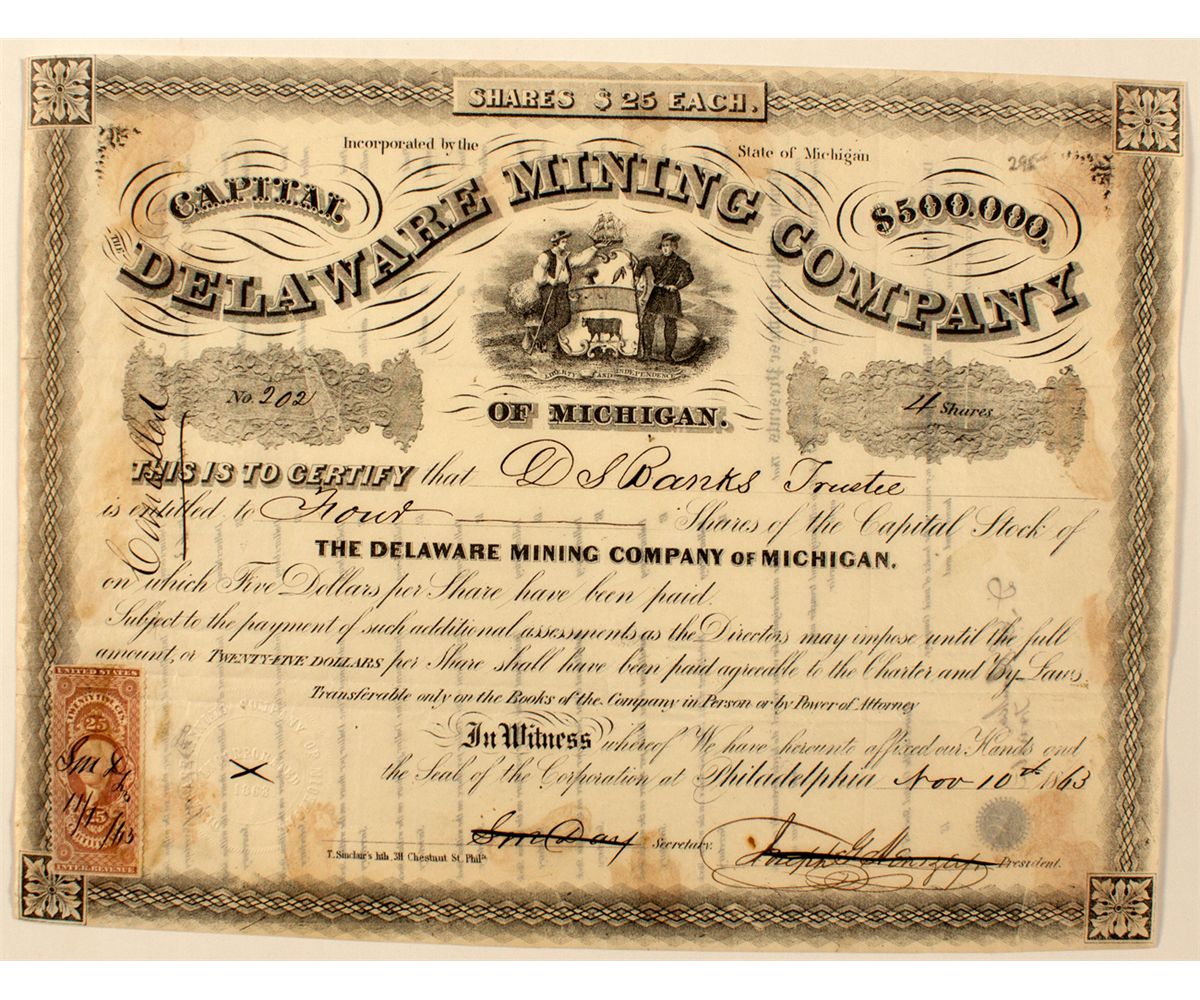 SHARES $25 EACH.
Incorporated by the State of Michigan
295-
CAPITAL $500.000.
THE DELAWARE MINING COMPANY
LIBERTY AND INDEPENDENCE
OF MICHIGAN.
No 202
4 Shares
Cancelled
THIS IS TO CERTIFY that D S Banks Trustee
is entitled to Four Shares of the Capital Stock of
THE DELAWARE MINING COMPANY OF MICHIGAN.
on which Five Dollars per Share have been paid.
Subject to the payment of such additional assessments as the Directors may impose until the full
amount, or TWENTY-FIVE DOLLARS per Share shall have been paid agreeable to the Charter and By Laws.
Transferable only on the Books of the Company in Person or by Power of Attorney
In Witness whereof We have hereunto affixed our Hands and
the Seal of the Corporation at Philadelphia Nov 10th 1863
Secretary.
President.
T. Sinclair's lith, 311 Chestnut St. Phila
UNITED STATES
TWENTY FIVE CTS.
25
25
INTER. REVENUE
1863